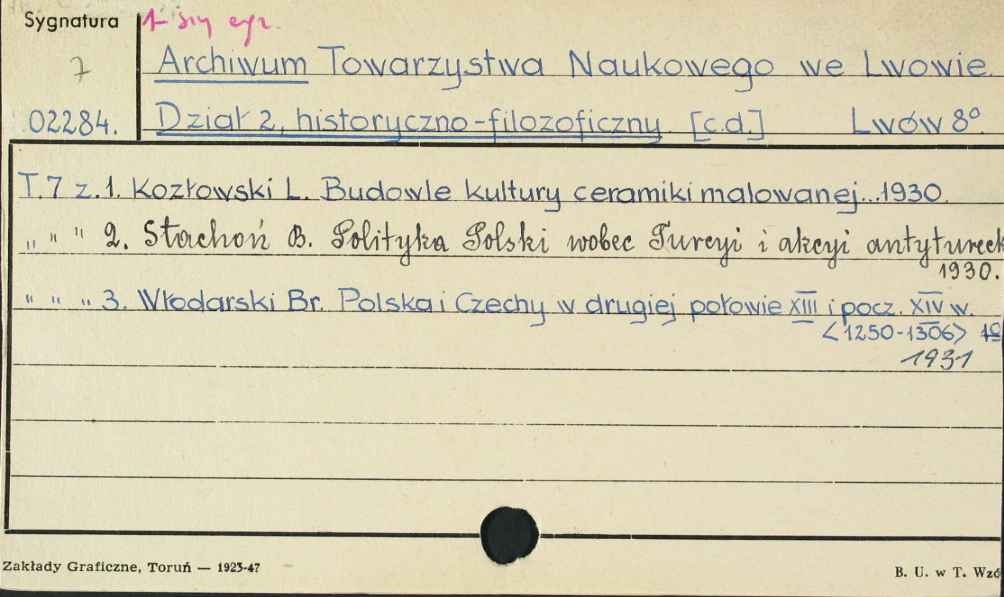 Sygnatura 1-szy egz.
7 Archiwum Towarzystwa Naukowego we Lwowie.
02284. Dział 2, historyczno-filozoficzny. [c.d.] Lwów 8º.
T.7 z.1. Kozłowski L. Budowle kultury ceramiki malowanej...1930.
„ " " 2. Stachoń B. Polityka Polski wobec Turcyi i akcyi antytureck
1930.
" " „ 3. Włodarski Br. Polska i Czechy w drugiej połowie XIII i pocz. XIV w.
<1250-1306>
1931
Zakłady Graficzne, Toruń — 1923-47
B. U. w T. Wzó